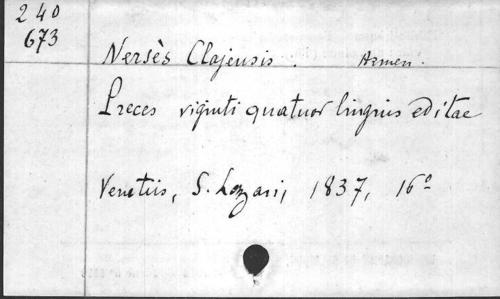 240
673
Nersès Clajensis. Armen.
Preces viginti quatuor linguis editae
Venetiis, S. Lazari, 1837, 16º